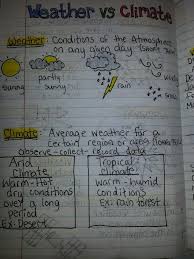 Weather vs Climate
Weather: Conditions of the Atmosphere
on any given day. (short time)
sunny
partly
sunny
rain
Climate: Average weather for a
certain region or area (long time)
observe - collect - record data
Arid
Climate
Warm-Hot
dry conditions
over a long
period
Ex: Desert
Tropical
climate
warm-humid
conditions
Ex: rain forest